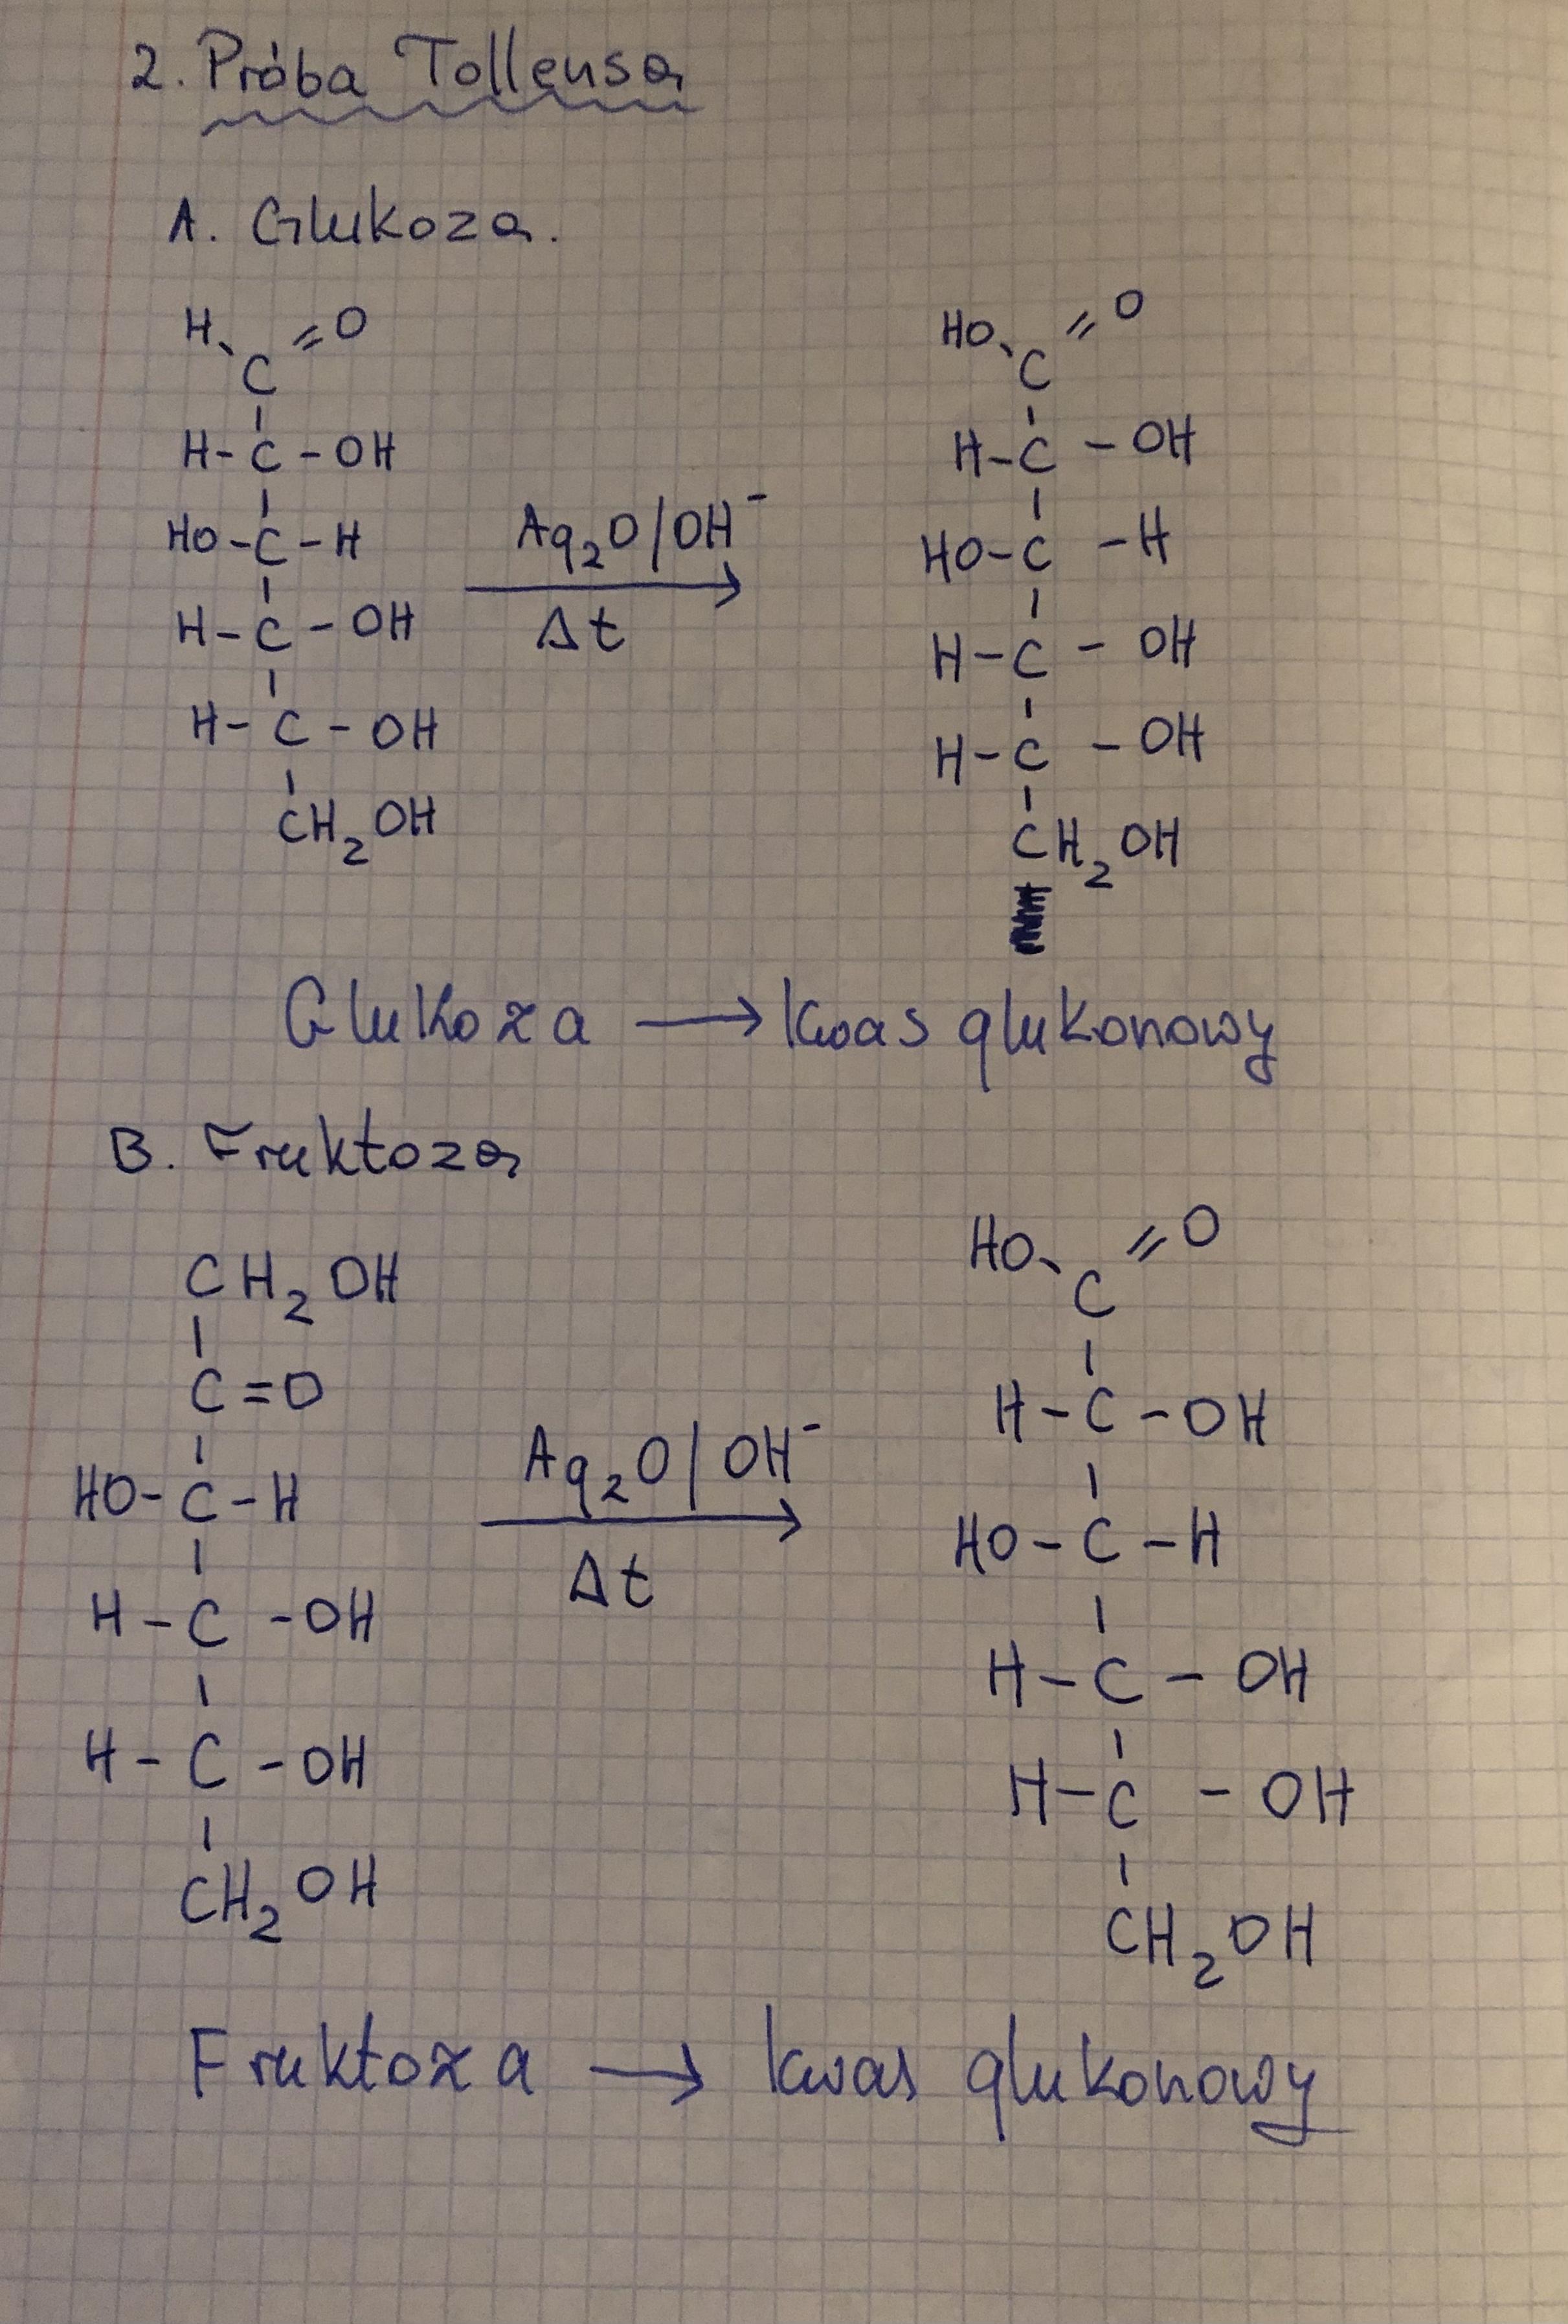 2. Próba Tollensa
A. Glukoza.
H C =O
H-C-OH
HO-C-H
H-C-OH
H-C-OH
CH2OH
Ag2O/OH⁻
Δt
HO C =O
H-C-OH
HO-C-H
H-C-OH
H-C-OH
CH2OH
Glukoza → kwas glukonowy
B. Fruktoza
CH2OH
C=O
HO-C-H
H-C-OH
H-C-OH
CH2OH
Ag2O/OH⁻
Δt
HO C =O
H-C-OH
HO-C-H
H-C-OH
H-C-OH
CH2OH
Fruktoza → kwas glukonowy